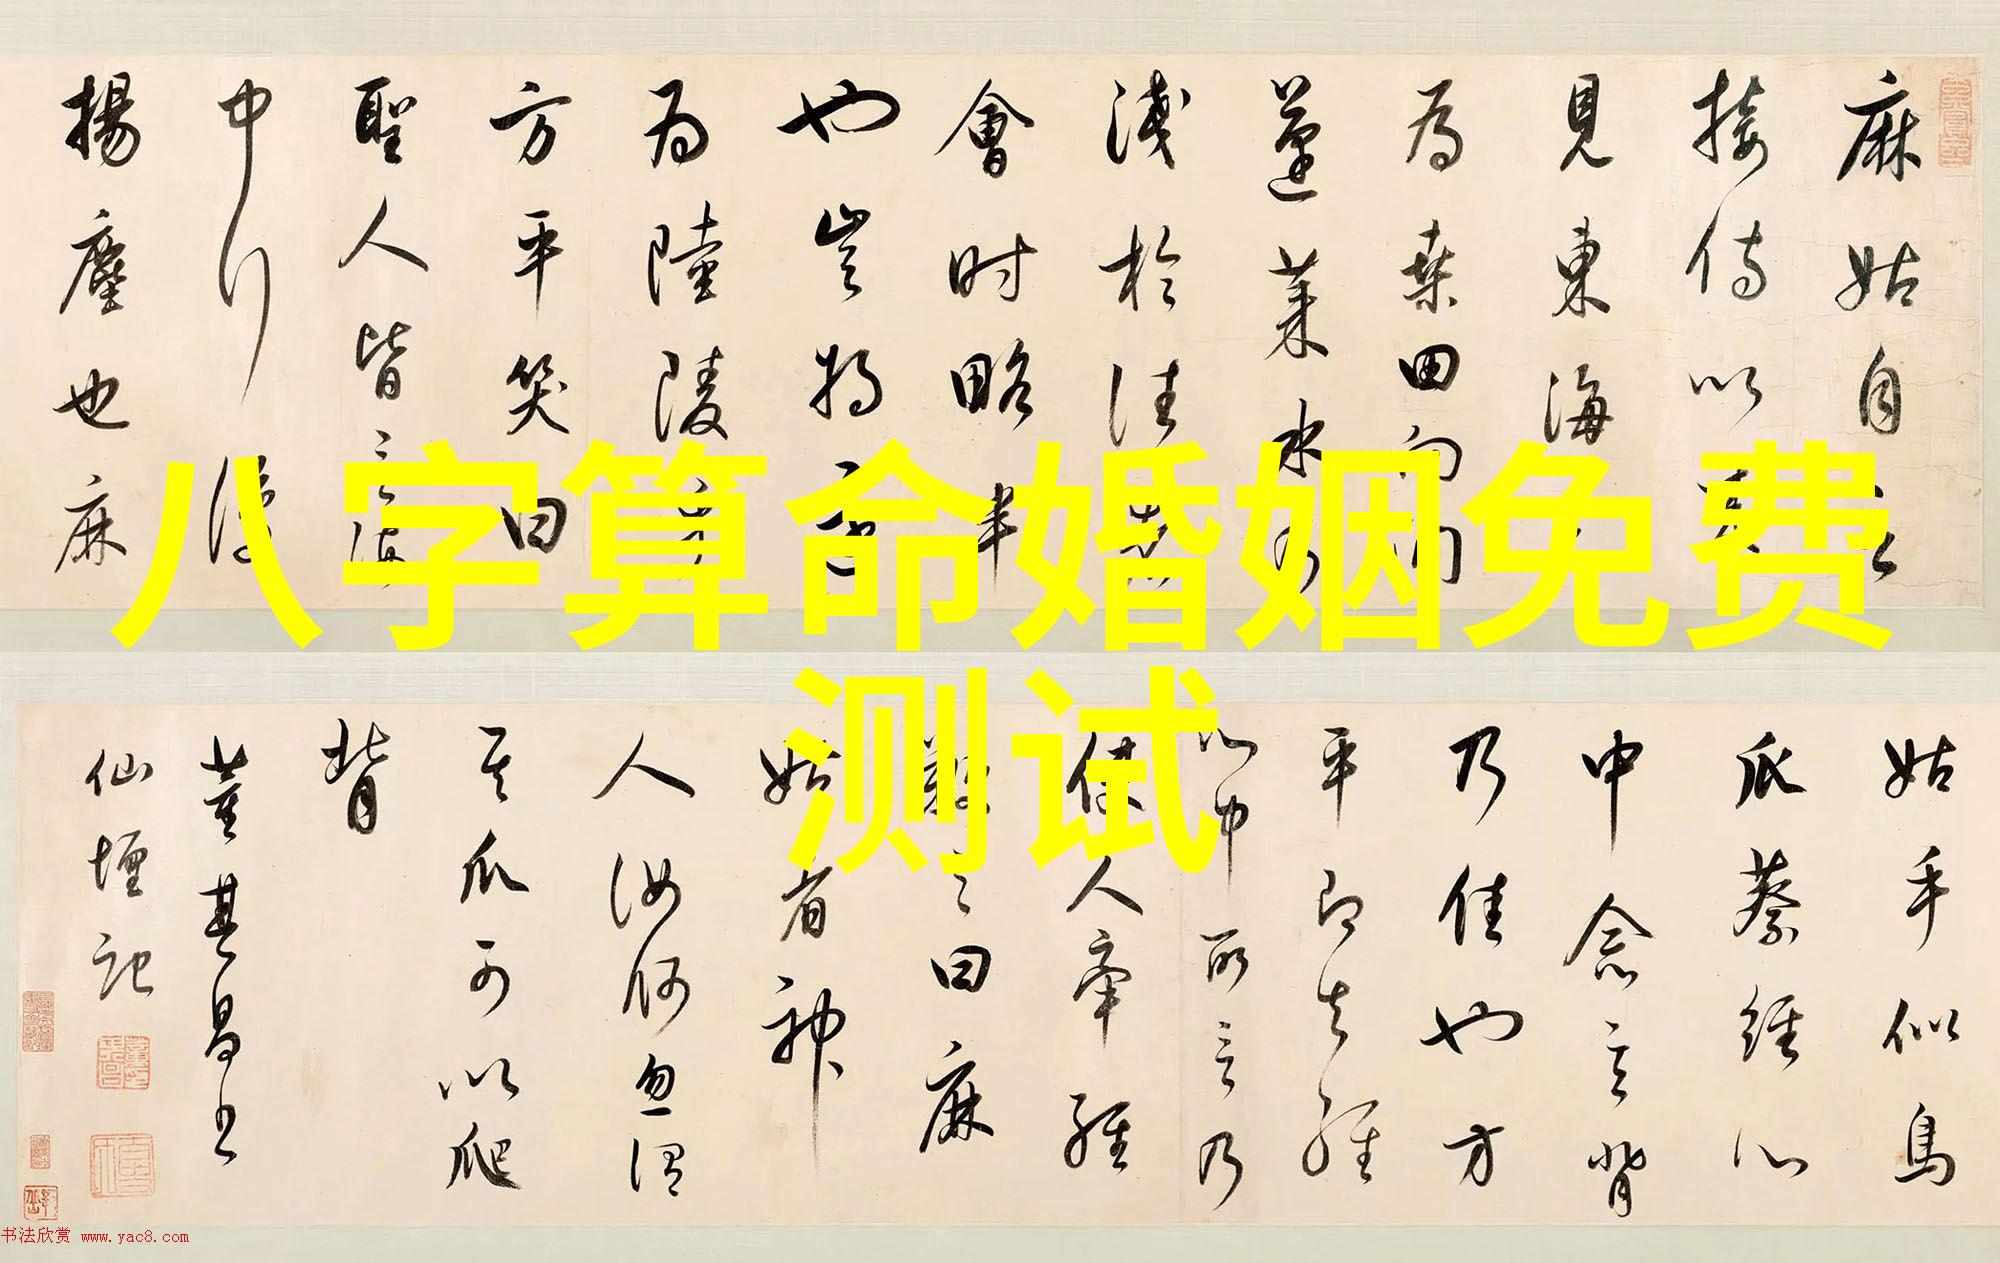 麻姑自言
接侍以來
見東海三
為桑田向間
蓬萊水乃
淺於往者
會時略半
也豈將復還
為陸陵乎
方平笑曰
聖人皆言海
中行復
揚塵也麻
八字算命婚姻免费
测试
姑手似鳥
爪蔡經心
中念言背
乃佳也方
平即知經
心中所言乃
使人牽經
鞭之曰麻
姑者神
人汝何忽謂
其爪可以爬
背
董其昌書
仙壇記
书法欣赏 www.yac8.com